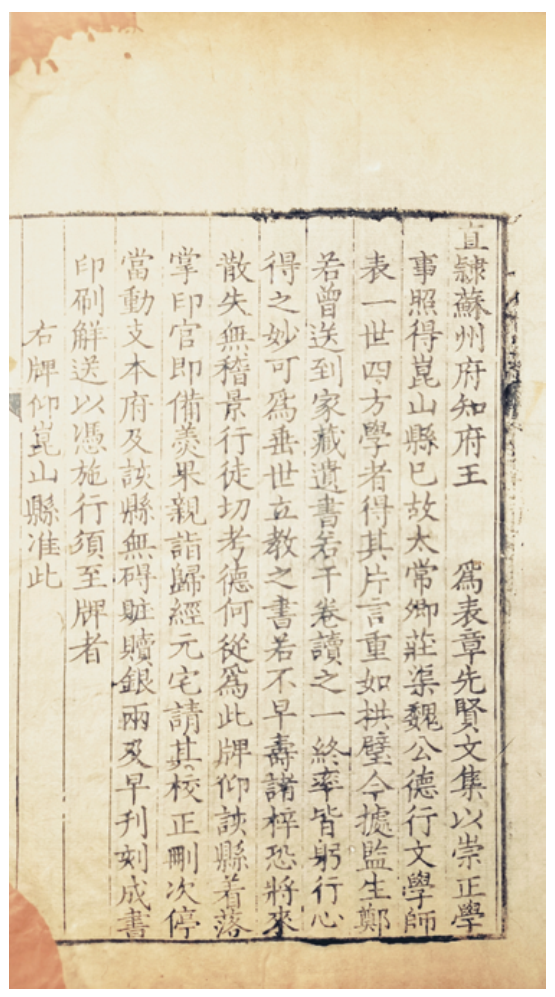 直隷蘇州府知府王　爲表章先賢文集以崇正學
事照得崑山縣已故太常卿莊渠魏公德行文學師
表一世四方學者得其片言重如拱璧今據監生鄭
若曾送到家藏遺書若干卷讀之一終率皆躬行心
得之妙可爲垂世立教之書若不早壽諸梓恐將來
散失無稽景行徒切考德何從爲此牌仰該縣着落
掌印官即備羹果親詣歸經元宅請其校正刪次停
當動支本府及該縣無碍贓贖銀兩及早刊刻成書
印刷解送以憑施行須至牌者
右牌仰崑山縣准此